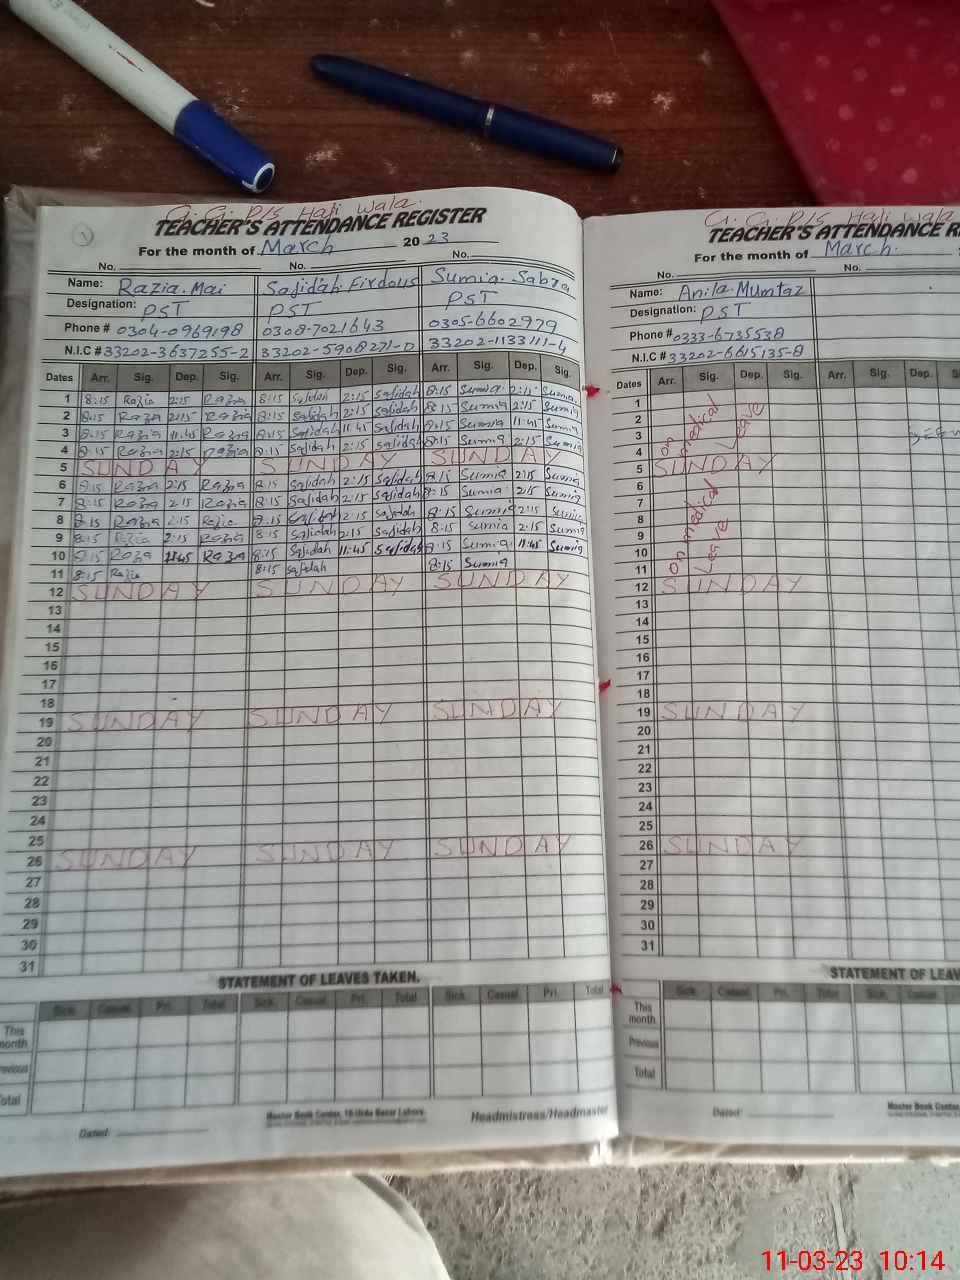 G. G. P/S Haji Wala.
TEACHER'S ATTENDANCE REGISTER
For the month of March 2023
No. No. No.
Name: Razia Mai Sajidah Firdous Sumia Sabra
Designation: PST PST PST
Phone # 0304-0969198 0308-7021643 0305-6602979
N.I.C # 33202-3637255-2 33202-5908271-0 33202-1133111-4
Dates Arr. Sig. Dep. Sig. Arr. Sig. Dep. Sig. Arr. Sig. Dep. Sig.
1 8:15 Razia 2:15 Razia 8:15 Sajidah 2:15 Sajidah 8:15 Sumia 2:15 Sumia
2 8:15 Razia 2:15 Razia 8:15 Sajidah 2:15 Sajidah 8:15 Sumia 2:15 Sumia
3 8:15 Razia 11:45 Razia 8:15 Sajidah 11:45 Sajidah 8:15 Sumia 11:45 Sumia
4 8:15 Razia 2:15 Razia 8:15 Sajidah 2:15 Sajidah 8:15 Sumia 2:15 Sumia
5 SUNDAY SUNDAY SUNDAY
6 8:15 Razia 2:15 Razia 8:15 Sajidah 2:15 Sajidah 8:15 Sumia 2:15 Sumia
7 8:15 Razia 2:15 Razia 8:15 Sajidah 2:15 Sajidah 8:15 Sumia 2:15 Sumia
8 8:15 Razia 2:15 Razia 8:15 Sajidah 2:15 Sajidah 8:15 Sumia 2:15 Sumia
9 8:15 Razia 2:15 Razia 8:15 Sajidah 2:15 Sajidah 8:15 Sumia 2:15 Sumia
10 8:15 Razia 11:45 Razia 8:15 Sajidah 11:45 Sajidah 8:15 Sumia 11:45 Sumia
11 8:15 Razia 8:15 Sajidah 8:15 Sumia
12 SUNDAY SUNDAY SUNDAY
13
14
15
16
17
18
19 SUNDAY SUNDAY SUNDAY
20
21
22
23
24
25
26 SUNDAY SUNDAY SUNDAY
27
28
29
30
31
STATEMENT OF LEAVES TAKEN.
Sick. Casual. Pri. Total Sick. Casual. Pri. Total Sick. Casual. Pri. Total
This month
Previous
Total
Master Book Center, 16-Urdu Bazar Lahore
Headmistress/Headmaster
Dated:
G. G. P/S Haji Wala
TEACHER'S ATTENDANCE R
For the month of March.
No. No.
Name: Anila Mumtaz
Designation: PST
Phone # 0333-6735538
N.I.C # 33202-6615135-8
Dates Arr. Sig. Dep. Sig. Arr. Sig. Dep.
1
2
3
4
on medical Leave
5 SUNDAY
6
7
8
9
10
11
on medical Leave
12 SUNDAY
13
14
15
16
17
18
19 SUNDAY
20
21
22
23
24
25
26 SUNDAY
27
28
29
30
31
STATEMENT OF LEAV
Sick. Casual. Pri. Total Sick. Casual.
This month
Previous
Total
Dated:
Master Book Center,
11-03-23 10:14